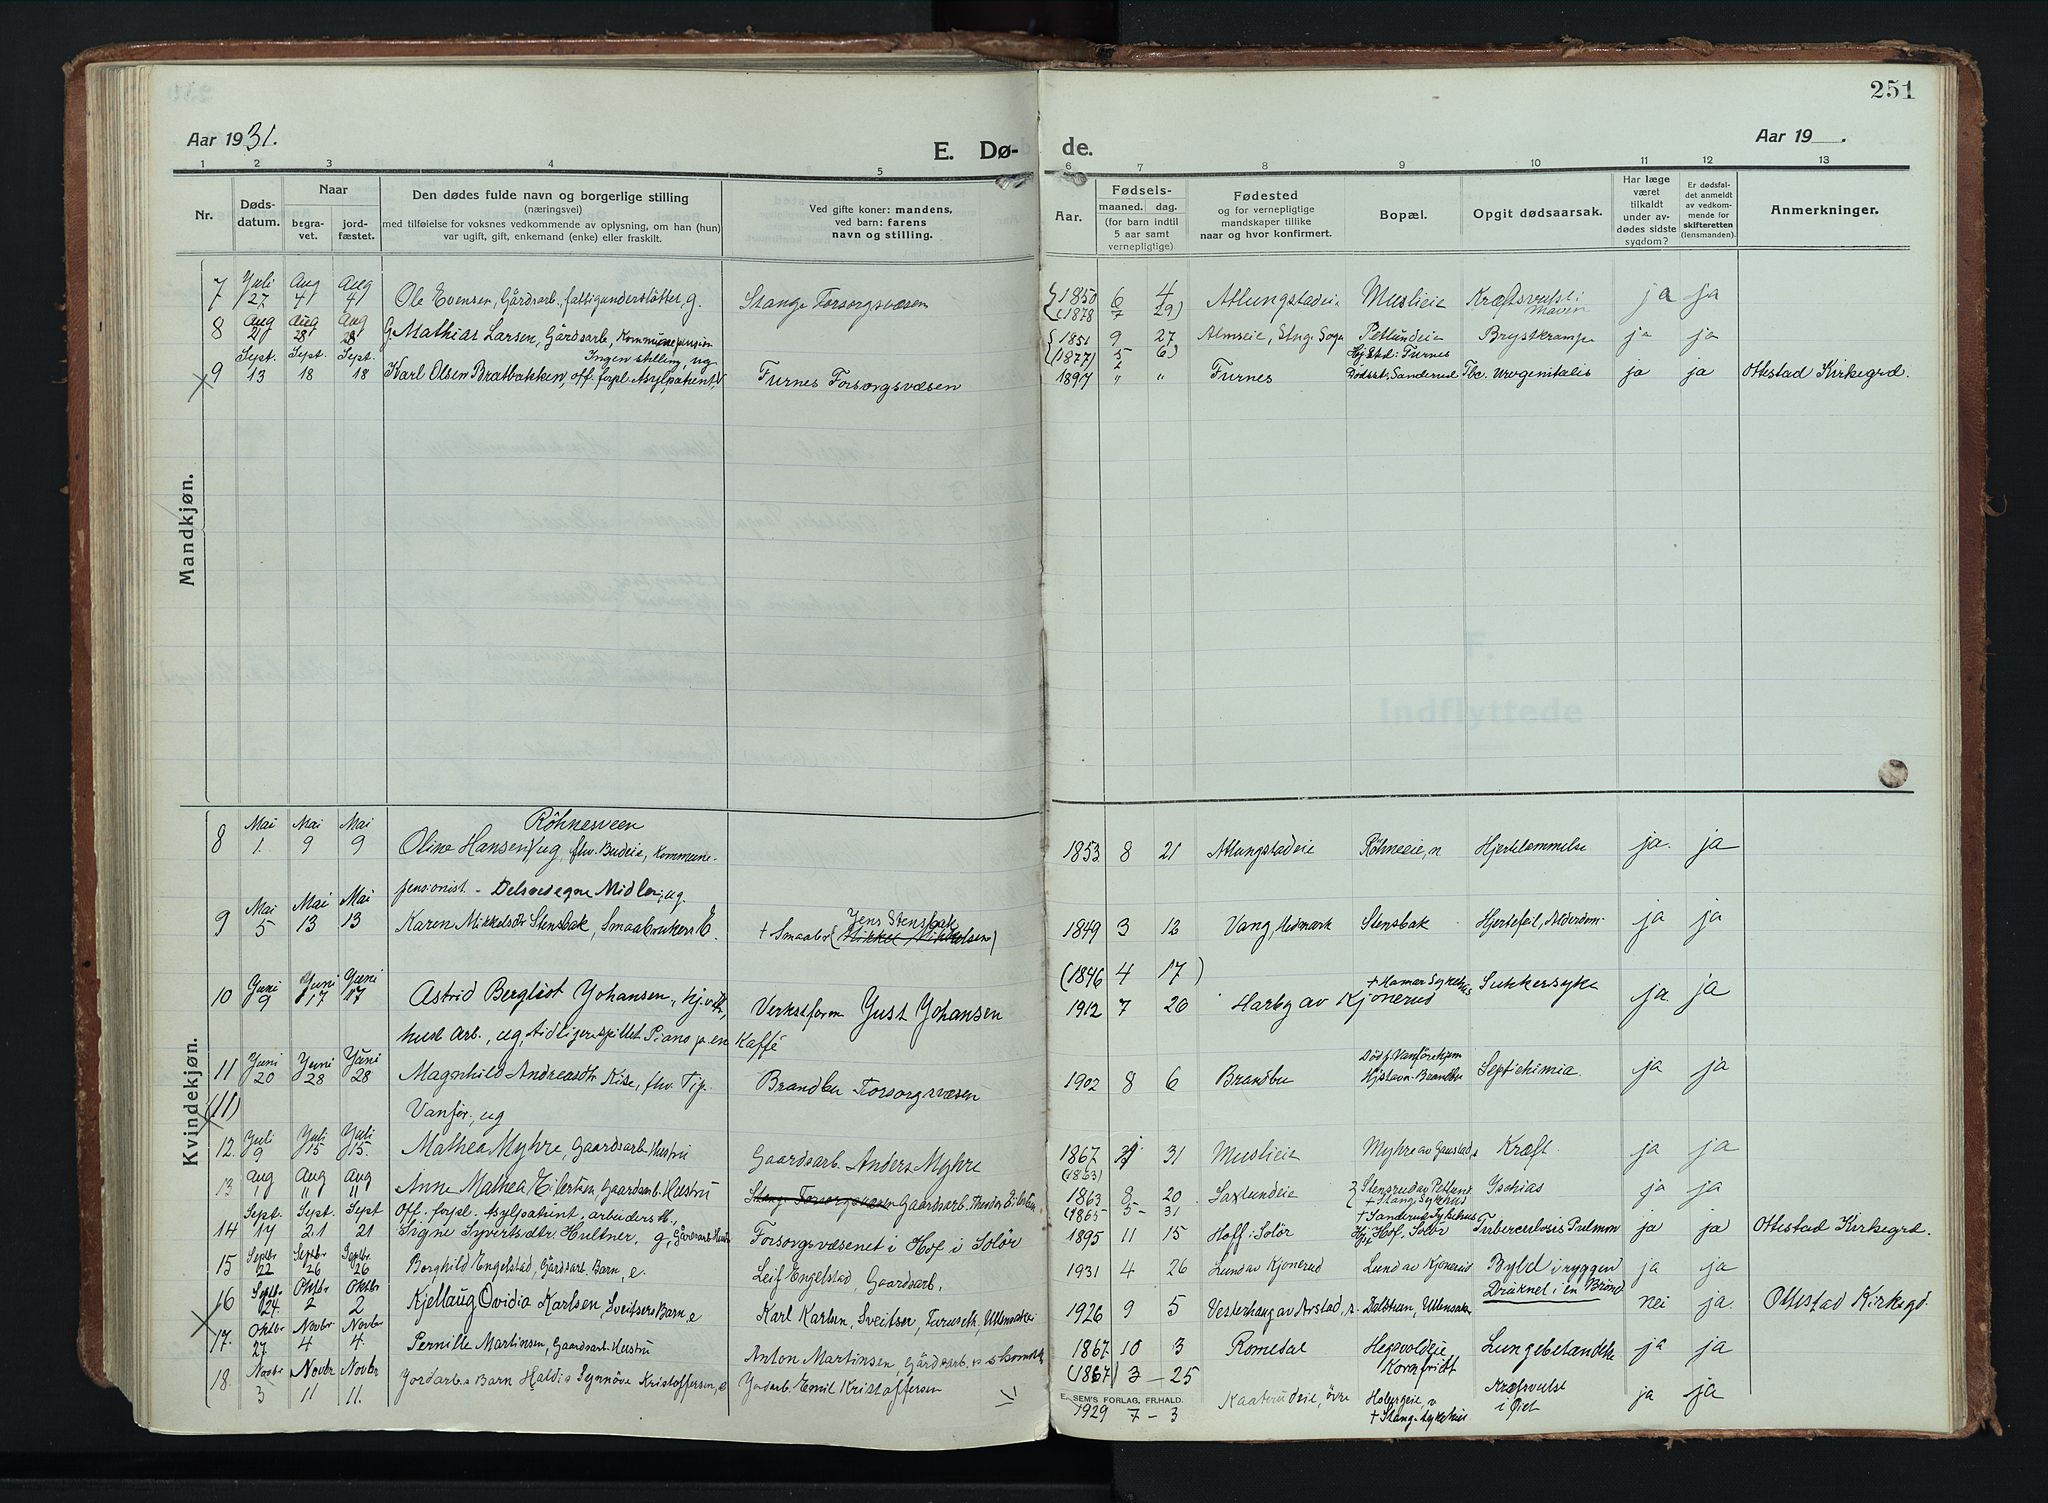 251
Aar 1931. E. Dø- de. Aar 19 .
1 2 3 4 5 6 7 8 9 10 11 12 13
Nr.
Døds-
datum.
Naar
begra-
vet.
jord-
fæstet.
Den dødes fulde navn og borgerlige stilling
(næringsvei)
med tilføielse for voksnes vedkommende av oplysning, om han (hun)
var ugift, gift, enkemand (enke) eller fraskilt.
Ved gifte koner: mandens,
ved barn: farens
navn og stilling.
Aar.
Fødsels-
maaned. dag.
(for barn indtil
5 aar samt
vernepligtige).
Fødested
og for vernepligtige
mandskaper tillike
naar og hvor konfirmert.
Bopæl.
Opgit dødsaarsak.
Har læge
været
tilkaldt
under av-
dødes sidste
sygdom?
Er dødsfal-
det anmeldt
av vedkom-
mende for
skifteretten
(lensmanden).
Anmerkninger.
Mandkjøn.
7 Juli 27 Aug 4 Aug 4 Ole Evensen, Gårdsarb., fattigunderstøttet, g. Stange Forsorgsvæsen 1850 6 4 Atlungstadeie Muslieie Kræftsvulst i Maven ja ja
(1878 7 29)
8 Aug 21 Aug 28 Aug 28 G. Mathias Larsen, Gårdsarb., Kommunepension 1851 9 27 Almseie, Stange Sogn Petlundeie Brystkrampe ja ja
(1877) 5 6)
Ingen stilling, ug Hjsted: Furnes
9 Sept. 13 Sept. 18 Sept. 18 Karl Olsen Bratbakken, off. forpl. Asylpatient Furnes Forsorgsvæsen 1897 " " Furnes Dødsst. Sanderud Tbc. Urogenitalis ja ja Ottestad Kirkegrd.
Kvindekjøn.
Röhnesveen
8 Mai 1. Mai 9 Mai 9 Oline Hansen ug, fhv. Budeie, Kommune- 1853 8 21 Atlungstadeie Røhneeie, n Hjertelammelse ja. ja
pensionist. - Delsved egne Midler, ug.
9 Mai 5 Mai 13 Mai 13 Karen Mikkelsdtr Stensbak, Smaabrukers E. Jens Stensbak
+ Smaabr. (Mikkel Mikkelsen) 1849 3 12 Vang, Hedmark Stensbak Hjertefeil, Alderdom- ja ja
(1846 4 17)
10 Juni 9 Juni 17 Juni 17 Astrid Bergliot Johansen, hj. v. Verkstform Just Johansen 1912 7 20 Harby av Kjonerud + Hamar Sykehus Sukkersyke ja ja
huslarb., ug, tidligere spillet Piano p. en Kaffé
11 Juni 20 Juni 28 Juni 28 Magnhild Andreasdtr Kise, fhv. Tjp. Brandbu Forsorgsvæsen 1902 8 6 Brandbu Død f. Vanførehjem Hjstavn. Brandbu Septichimia ja ja
(11) Vanfør, ug
12. Juli 9 Juli 15 Juli 15. Mathea Myhre, Gaardsarb. Hustru Gaardsarb. Anders Myhre 1867 31 Muslieie Myhre av Gaustad, s Kræft. ja ja
(1863)
13 Aug 1 Aug 11 Aug 11 Anne Mathea Eilertsen, Gaardsarb. Hustru Stange Forsorgsvæsen Gaardsarb. Theodor Eilertsen 1863 8- 20 Saxlundeie Stensrud av Petlund + Stang. Sykehus Ischias ja ja
(1865 5- 31
Off. forpl. Asylpatient, arbeiders H. + Sanderud Sykehus
14 Sept. 14 Sept. 21 Sept 21 Signe Syvertsdtr. Hultner, g, Gårdsarb. Hustru Forsorgsvæsenet i Hof i Solör 1895 11 15 Hoff i Solör Hjst. Hof, Solör Tuberculosis Pulmon ja ja Ottestad Kirkegrd.
15 Septbr 22 Septbr 26 Septbr 26 Borghild Engelstad, Gårdsarb. Barn, e. Leif Engelstad, Gaardsarb. 1931 4 26 Lund av Kjonerud Lund av Kjonerud Byld i ryggen ja ja
16 Septbr 24. Oktbr 2 Oktbr 2 Kjellaug Ovidia Karlsen, Sveitsers Barn, e Karl Karlsen, Sveitser, Furuseth, Ullensaker 1926 9 5 Vesterhaug av Arstad, s. Dalstuen, Ullensaker Druknet i en Brönd nei ja. Ottestad Kirkegd.
17. Oktbr 27 Novbr 4 Novbr 4. Pernille Martinsen, Gaardsarb. Hustru Anton Martinsen Gårdsarb. 1867 10 3 Romedal Hegsvoldeie Kornfridt Lungebetændelse ja ja
(1867) 3 - 25
18. Novbr 3 Novbr 11 Novbr 11. Jordarb.s Barn Haldis Synnöve Kristoffersen, e Jordarb. Emil Kristoffersen 1929 7 - 3 Kaaterudeie, övre Holbergeie, n + Stang. Sykehus Kræftsvulst i Öiet ja ja
E. SEM'S FORLAG, FR.HALD.